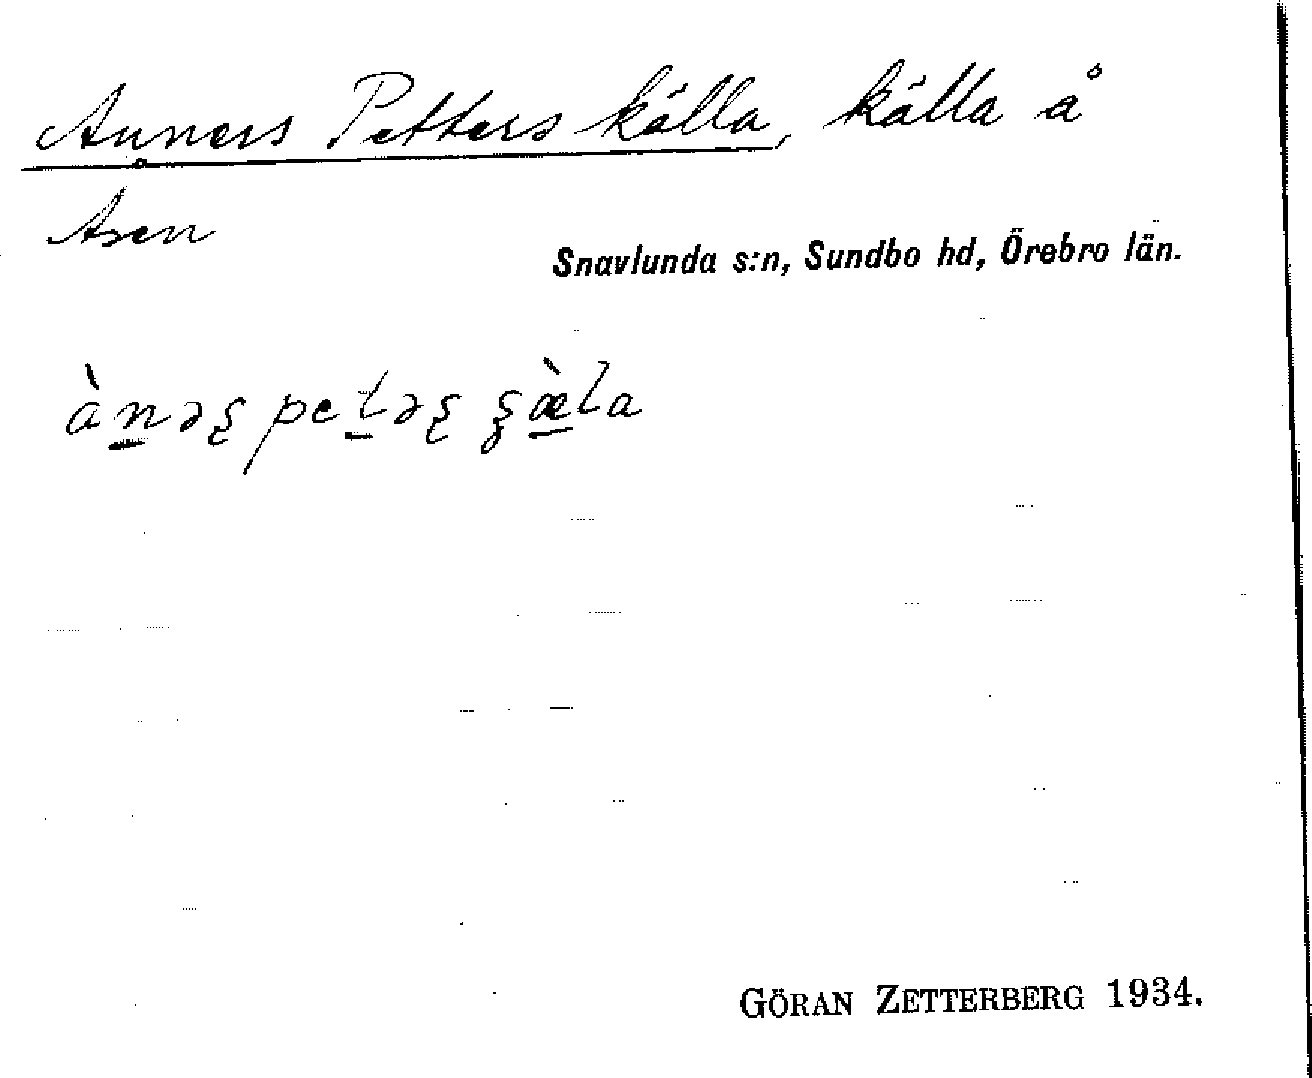 Anners Petters källa, källa å
Åsen
Snavlunda s:n, Sundbo hd, Örebro län.
GÖRAN ZETTERBERG 1934.